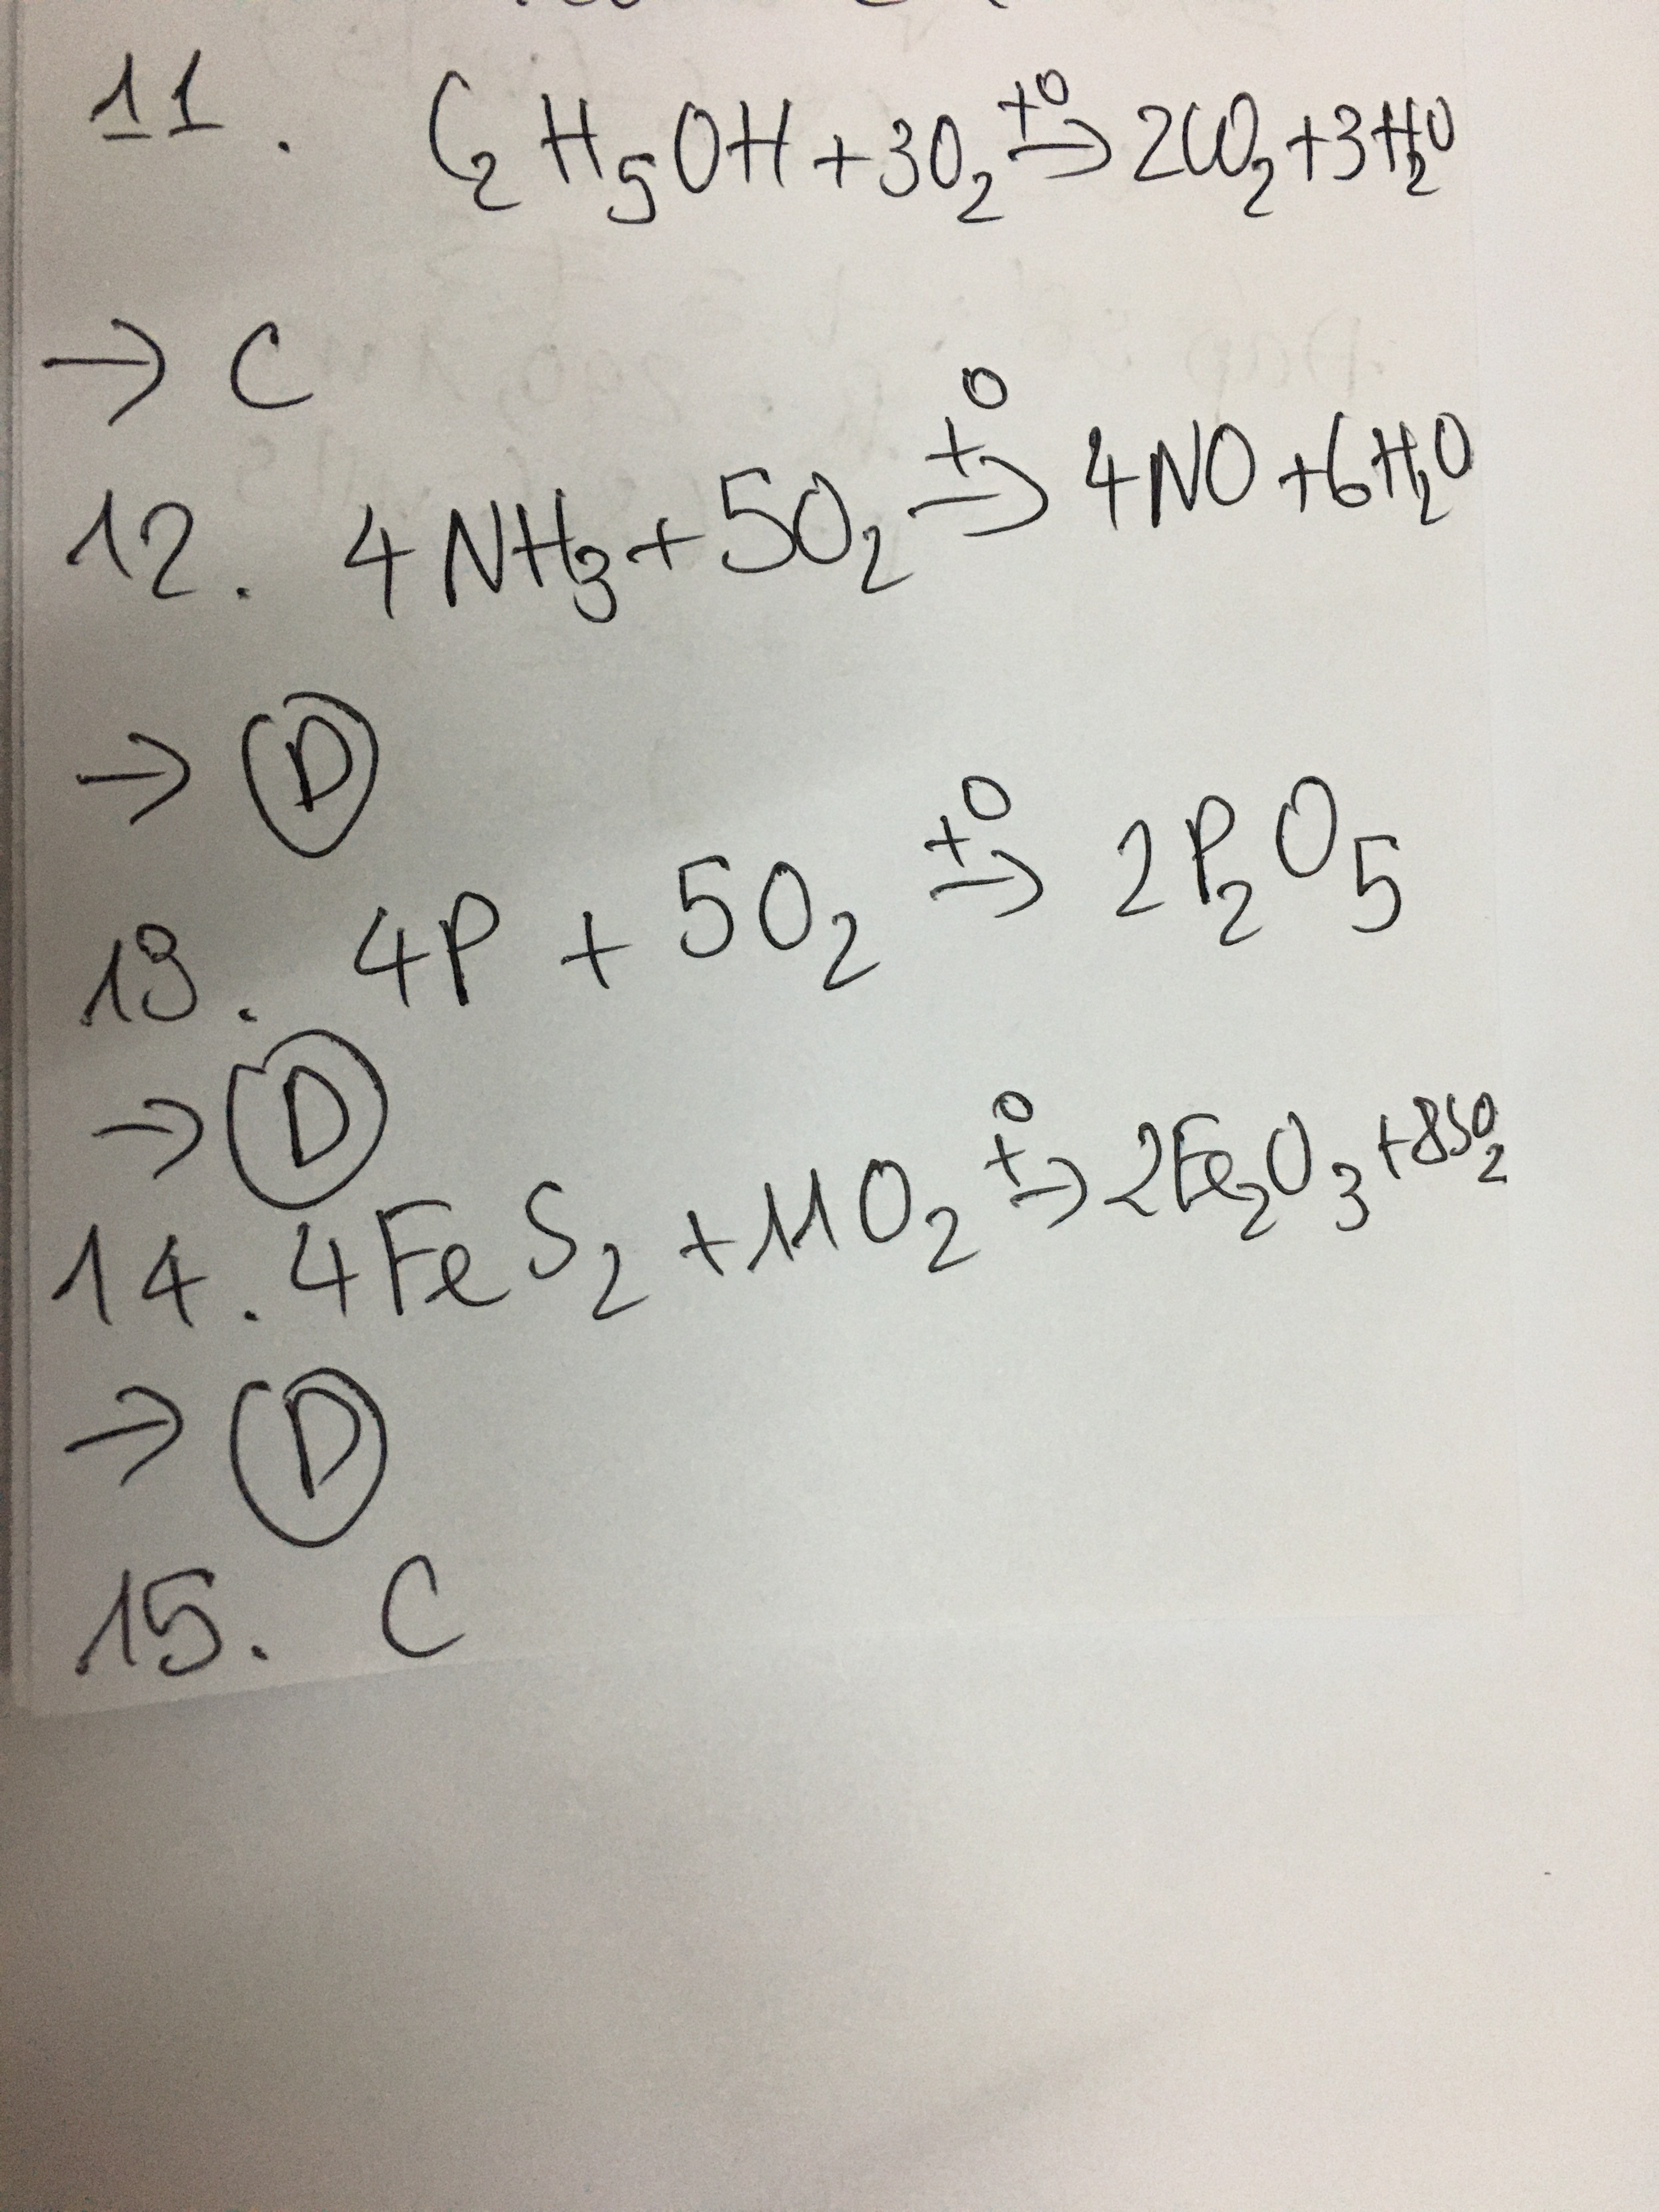 11. C₂H₅OH + 3O₂ →(t⁰) 2CO₂ + 3H₂O
→ C
12. 4NH₃ + 5O₂ →(t⁰) 4NO + 6H₂O
→ D
13. 4P + 5O₂ →(t⁰) 2P₂O₅
→ D
14. 4FeS₂ + 11O₂ →(t⁰) 2Fe₂O₃ + 8SO₂
→ D
15. C